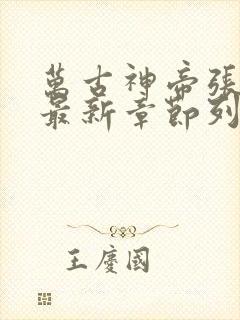 萬古神帝張
最新章節列
王慶國